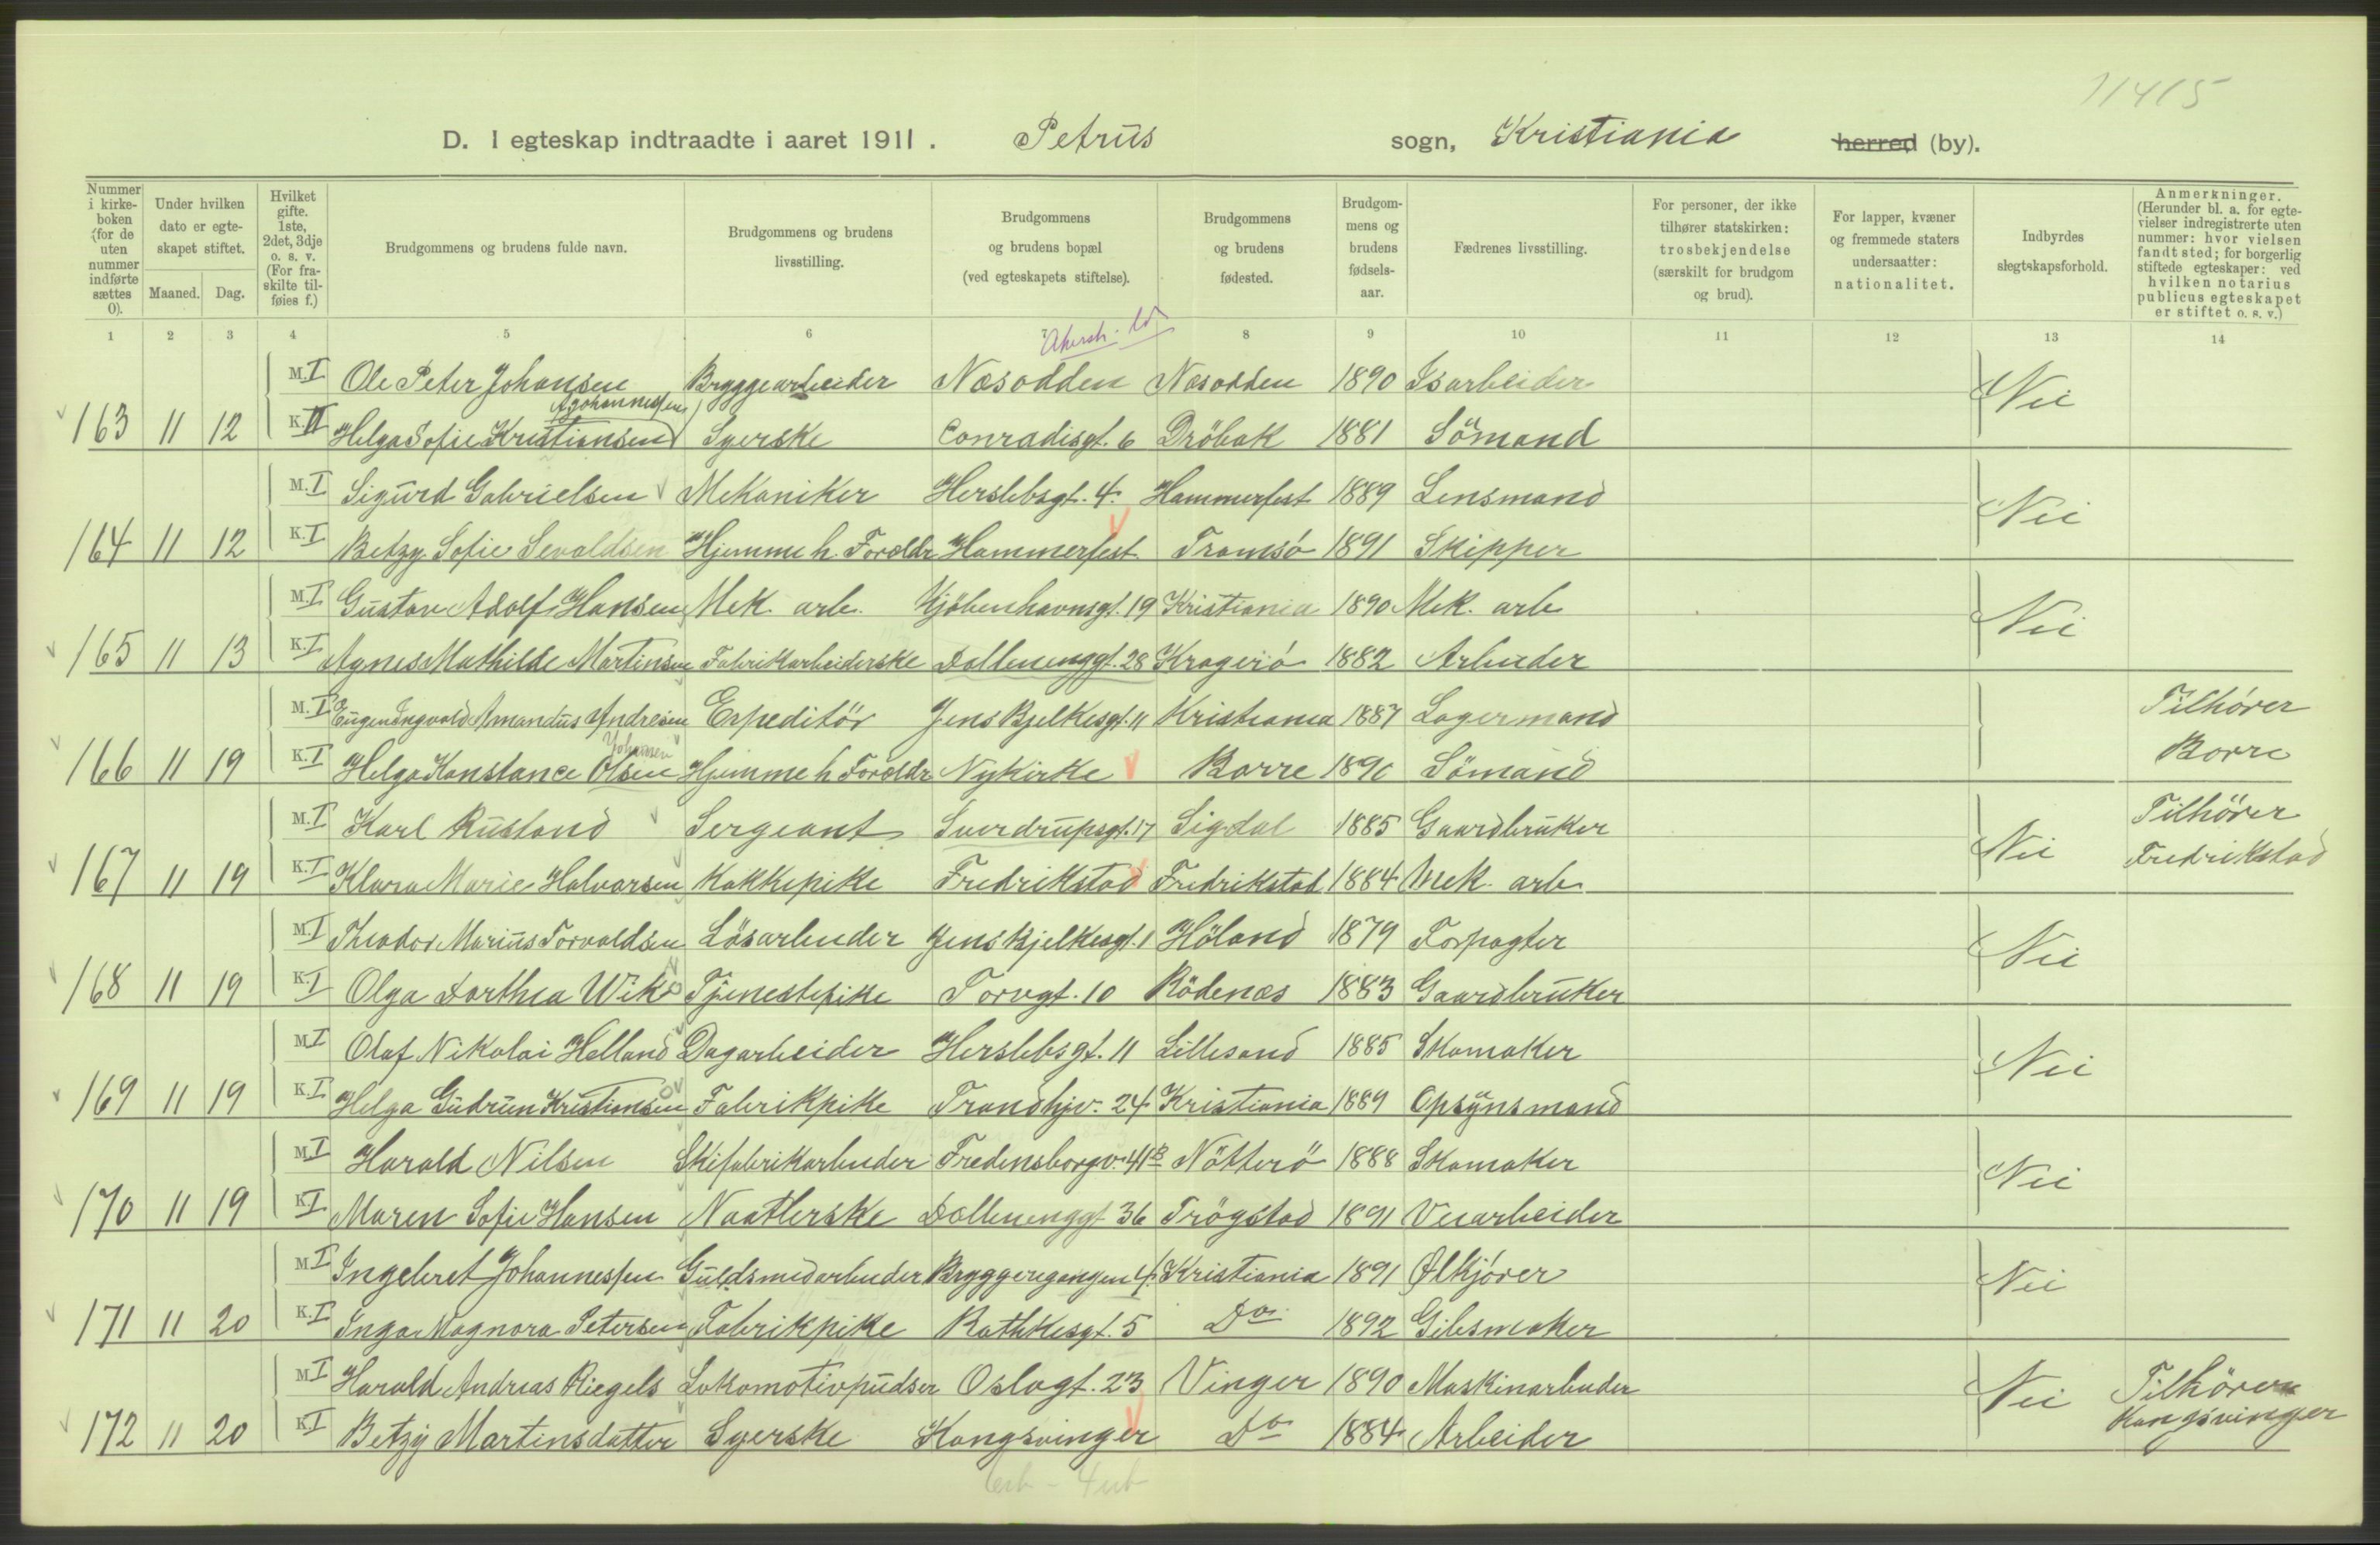 11415
D. I egteskap indtraadte i aaret 1911. Petrus sogn, Kristiania herred (by).
Nummer i kirke-boken (for de uten nummer indførte sættes 0).
Under hvilken dato er egte-skapet stiftet.
Maaned. Dag.
Hvilket gifte. 1ste, 2det, 3dje o. s. v. (For fra-skilte til-føies f.)
Brudgommens og brudens fulde navn.
Brudgommens og brudens livsstilling.
Brudgommens og brudens bopæl (ved egteskapets stiftelse).
Brudgommens og brudens fødested.
Brudgom-mens og brudens fødsels-aar.
Fædrenes livsstilling.
For personer, der ikke tilhører statskirken: trosbekjendelse (særskilt for brudgom og brud).
For lapper, kvæner og fremmede staters undersaatter: nationalitet.
Indbyrdes slegtskapsforhold.
Anmerkninger. (Herunder bl. a. for egte-vielser indregistrerte uten nummer: hvor vielsen fandt sted; for borgerlig stiftede egteskaper: ved hvilken notarius publicus egteskapet er stiftet o. s. v.)
1 2 3 4 5 6 7 8 9 10 11 12 13 14
Akersh.
M. I Ole Peter Johansen Bryggearbeider Næsodden Næsodden 1890 Isarbeider Nei
f. Johannessen
163 11 12 K. II Helga Sofie Kristiansen Syerske Conradisgt. 6 Dröbak 1881 Sömand
M. I Sigurd Gabrielsen Mekaniker Herslebsgt. 4. Hammerfest 1889 Lensmand Nei
164 11 12 K. I Betzy Sofie Sevaldsen Hjemme h. Foreldr Hammerfest Tromsö 1891 Skipper
M. I Gustav Adolf Hansen Mek. arb. Kjöbenhavnsgt. 19 Kristiania 1890 Mek. arb Nei
165 11 13 K. I Agnes Mathilde Martinsen Fabrikarbeiderske Dællenenggt. 28 Kragerö 1882 Arbeider
M. I Eugen Ingvald Amandus Andresen Expeditör Jens Bjelkesgt. 11 Kristiania 1887 Lagermand Tilhörer
Johansen
166 11 19 K. I Helga Konstance Olsen Hjemme h Foreldr Nykirke Borre 1890 Sömand Borre
M. I Karl Rustand Sergeant Sverdrupsgt. 17 Sigdal 1885 Gaardbruker Nei Tilhörer
167 11 19 K. I Klara Marie Halvorsen Kokkepike Fredrikstad Fredrikstad 1884 Mek. arb. Fredrikstad
M. I Theodor Marius Torvaldsen Lösarbeider Jens Bjelkesgt. 1 Höland 1879 Forpagter Nei
168 11 19 K. I Olga Dorthea Wik Tjenestepike Torvgt. 10 Rödenæs 1883 Gaardbruker
M. I Olaf Nikolai Helland Dagarbeider Herslebsgt. 11 Lillesand 1885 Skomaker Nei
169 11 19 K. I Helga Gudrun Kristiansen Fabrikpike Trondhjv. 24 Kristiania 1889 Opsynsmand
M. I Harald Nilsen Skifabrikarbeider Fredensborgv. 41B Nötterö 1888 Skomaker Nei
170 11 19 K. I Maren Sofie Hansen Naatlerske Dællenenggt 36 Trögstad 1891 Veiarbeider
M. I Ingebret Johannessen Guldsmedarbeider Bryggerigangen 4. Kristiania 1891 Ølkjörer Nei
171 11 20 K. I Inga Magnora Petersen Fabrikpike Rathkesgt. 5 Do 1892 Gibsmaker
M. I Harald Andreas Riegels Lokomotivpudser Oslogt. 23 Vinger 1890 Maskinarbeider Nei Tilhörer
172 11 20 K. I Betzy Martinsdatter Syerske Kongsvinger Do 1884 Arbeider Kongsvinger